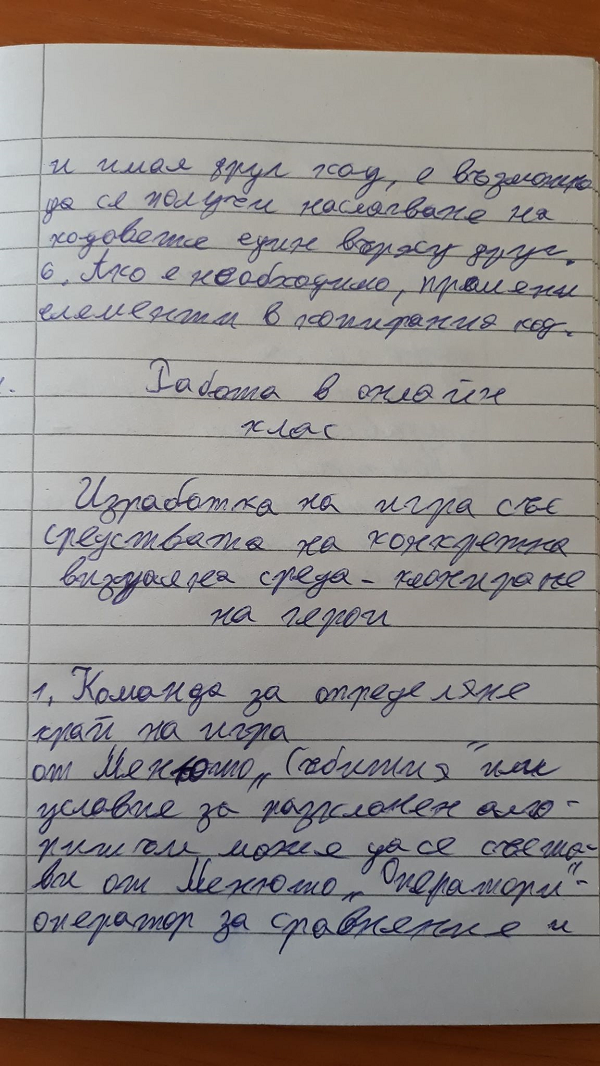 и имая друг код, е възможно
да се получи наслагване на
кодовете един върху друг.
6. Ако е необходимо, промени
елементи в копирания код.
Работа в онлайн
клас
Изработка на игра със
средствата на конкретна
визуална среда - клониране
на герои
1. Команда за определяне
край на игра
от Менюто „Събития" или
условие за разклонен алго-
ритъм може да се съста-
ви от Менюто „Оператори"-
оператор за сравнение и